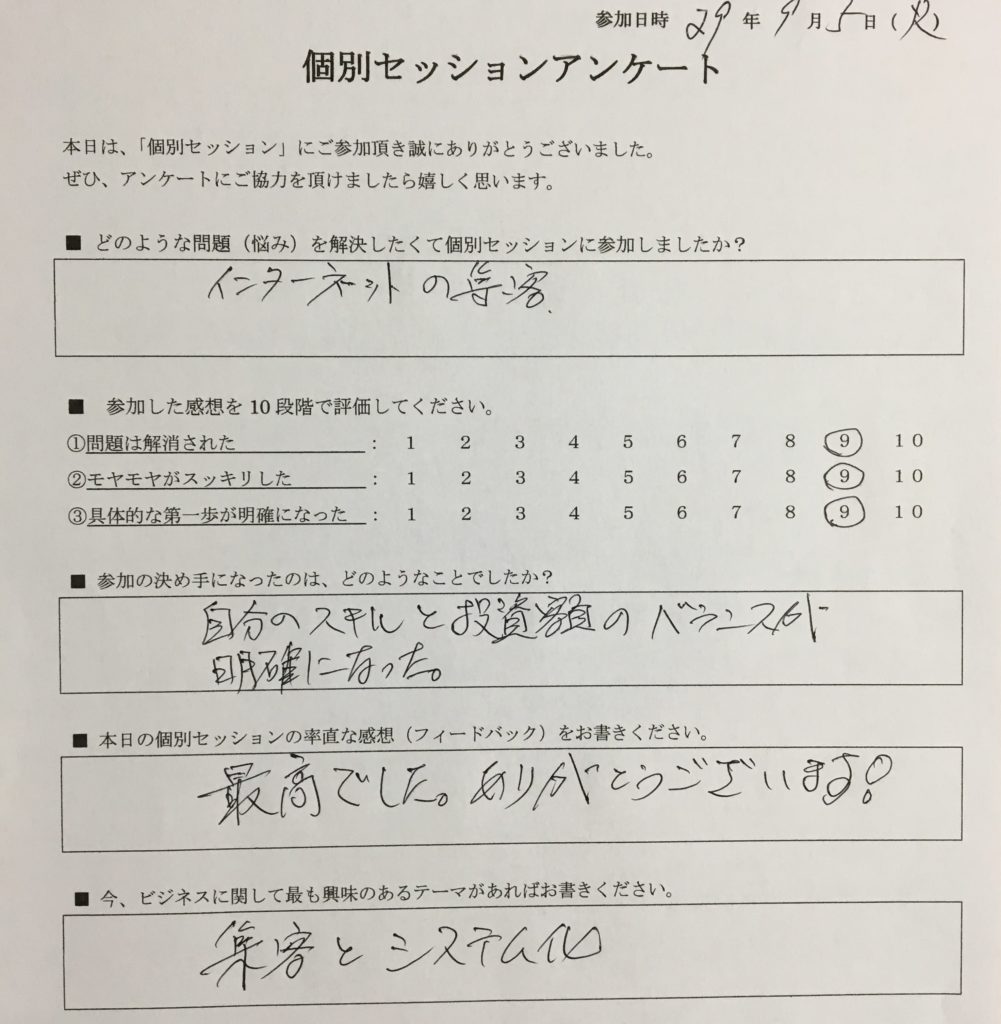 参加日時 29年9月5日(火)
個別セッションアンケート
本日は、「個別セッション」にご参加頂き誠にありがとうございました。
ぜひ、アンケートにご協力を頂けましたら嬉しく思います。
■ どのような問題（悩み）を解決したくて個別セッションに参加しましたか？
インターネットの集客.
■ 参加した感想を10段階で評価してください。
①問題は解消された : 1 2 3 4 5 6 7 8 9 10
②モヤモヤがスッキリした : 1 2 3 4 5 6 7 8 9 10
③具体的な第一歩が明確になった : 1 2 3 4 5 6 7 8 9 10
■ 参加の決め手になったのは、どのようなことでしたか？
自分のスキルと投資額のバランスが
明確になった。
■ 本日の個別セッションの率直な感想（フィードバック）をお書きください。
最高でした。ありがとうございます！
■ 今、ビジネスに関して最も興味のあるテーマがあればお書きください。
集客とシステム化